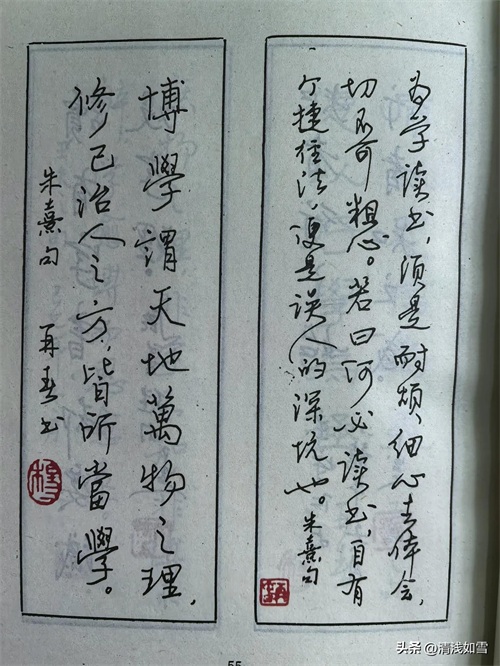 为学读书，须是耐烦，细心去体会，
切不可粗心。若曰何必读书，自有
个捷径法，便是误人的深坑也。朱熹句
博學謂天地萬物之理，
修己治人之方，皆所當學。
朱熹句 再春书
55
头条@清浅如雪